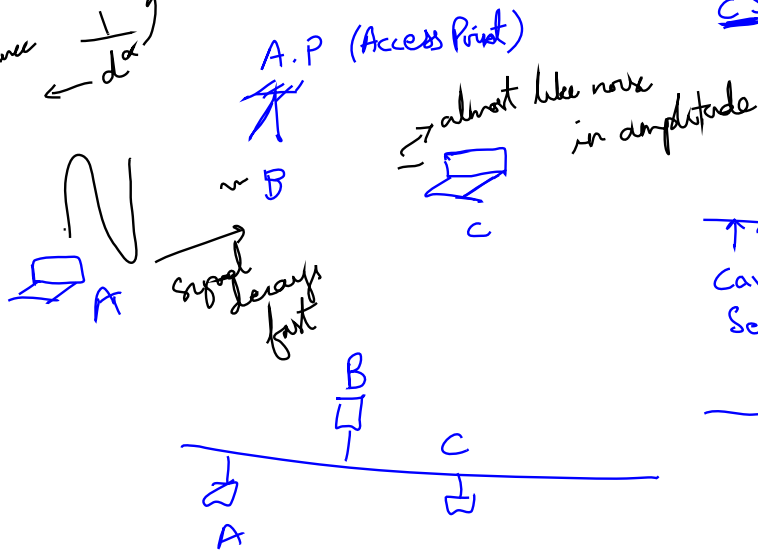 1
d^α
A.P (Access Point)
almost like noise
in amplitude
C S
~ B
C
A
signal
decays
fast
Ca
Se
B
C
A